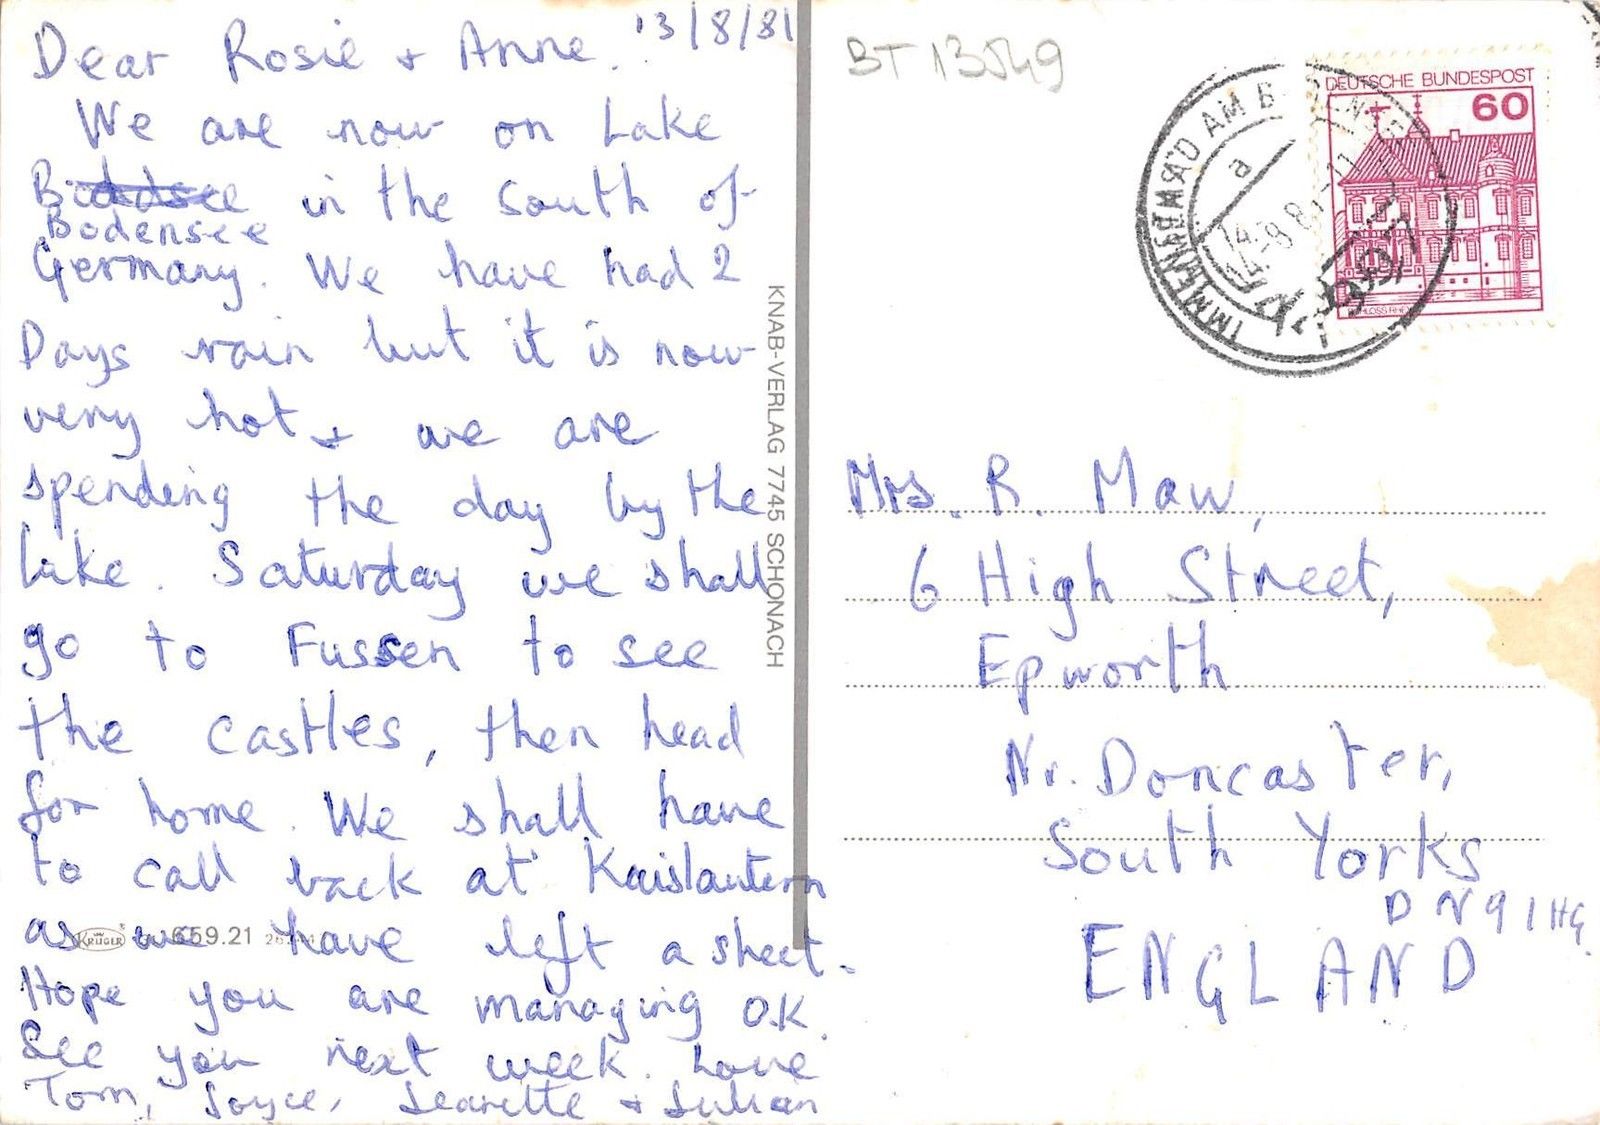 13/8/81
Dear Rosie + Anne.
We are now on Lake
Boddsee in the south of
Bodensee
Germany. We have had 2
Days rain but it is now
very hot + we are
spending the day by the
lake. Saturday we shall
go to Fussen to see
the castles, then head
for home. We shall have
to call back at Kaislautern
as we have left a sheet.
Hope you are managing O.K.
See you next week. Love
Tom, Joyce, Jeanette + Julian
KRÜGER
659.21
KNAB-VERLAG 7745 SCHONACH
BT 13549
DEUTSCHE BUNDESPOST
60
SCHLOSS
IMMENSTAAD AM
a
14.-8.8
Mrs. R. Maw,
6 High Street,
Epworth
Nr. Doncaster,
South Yorks
DN9 1HG.
ENGLAND